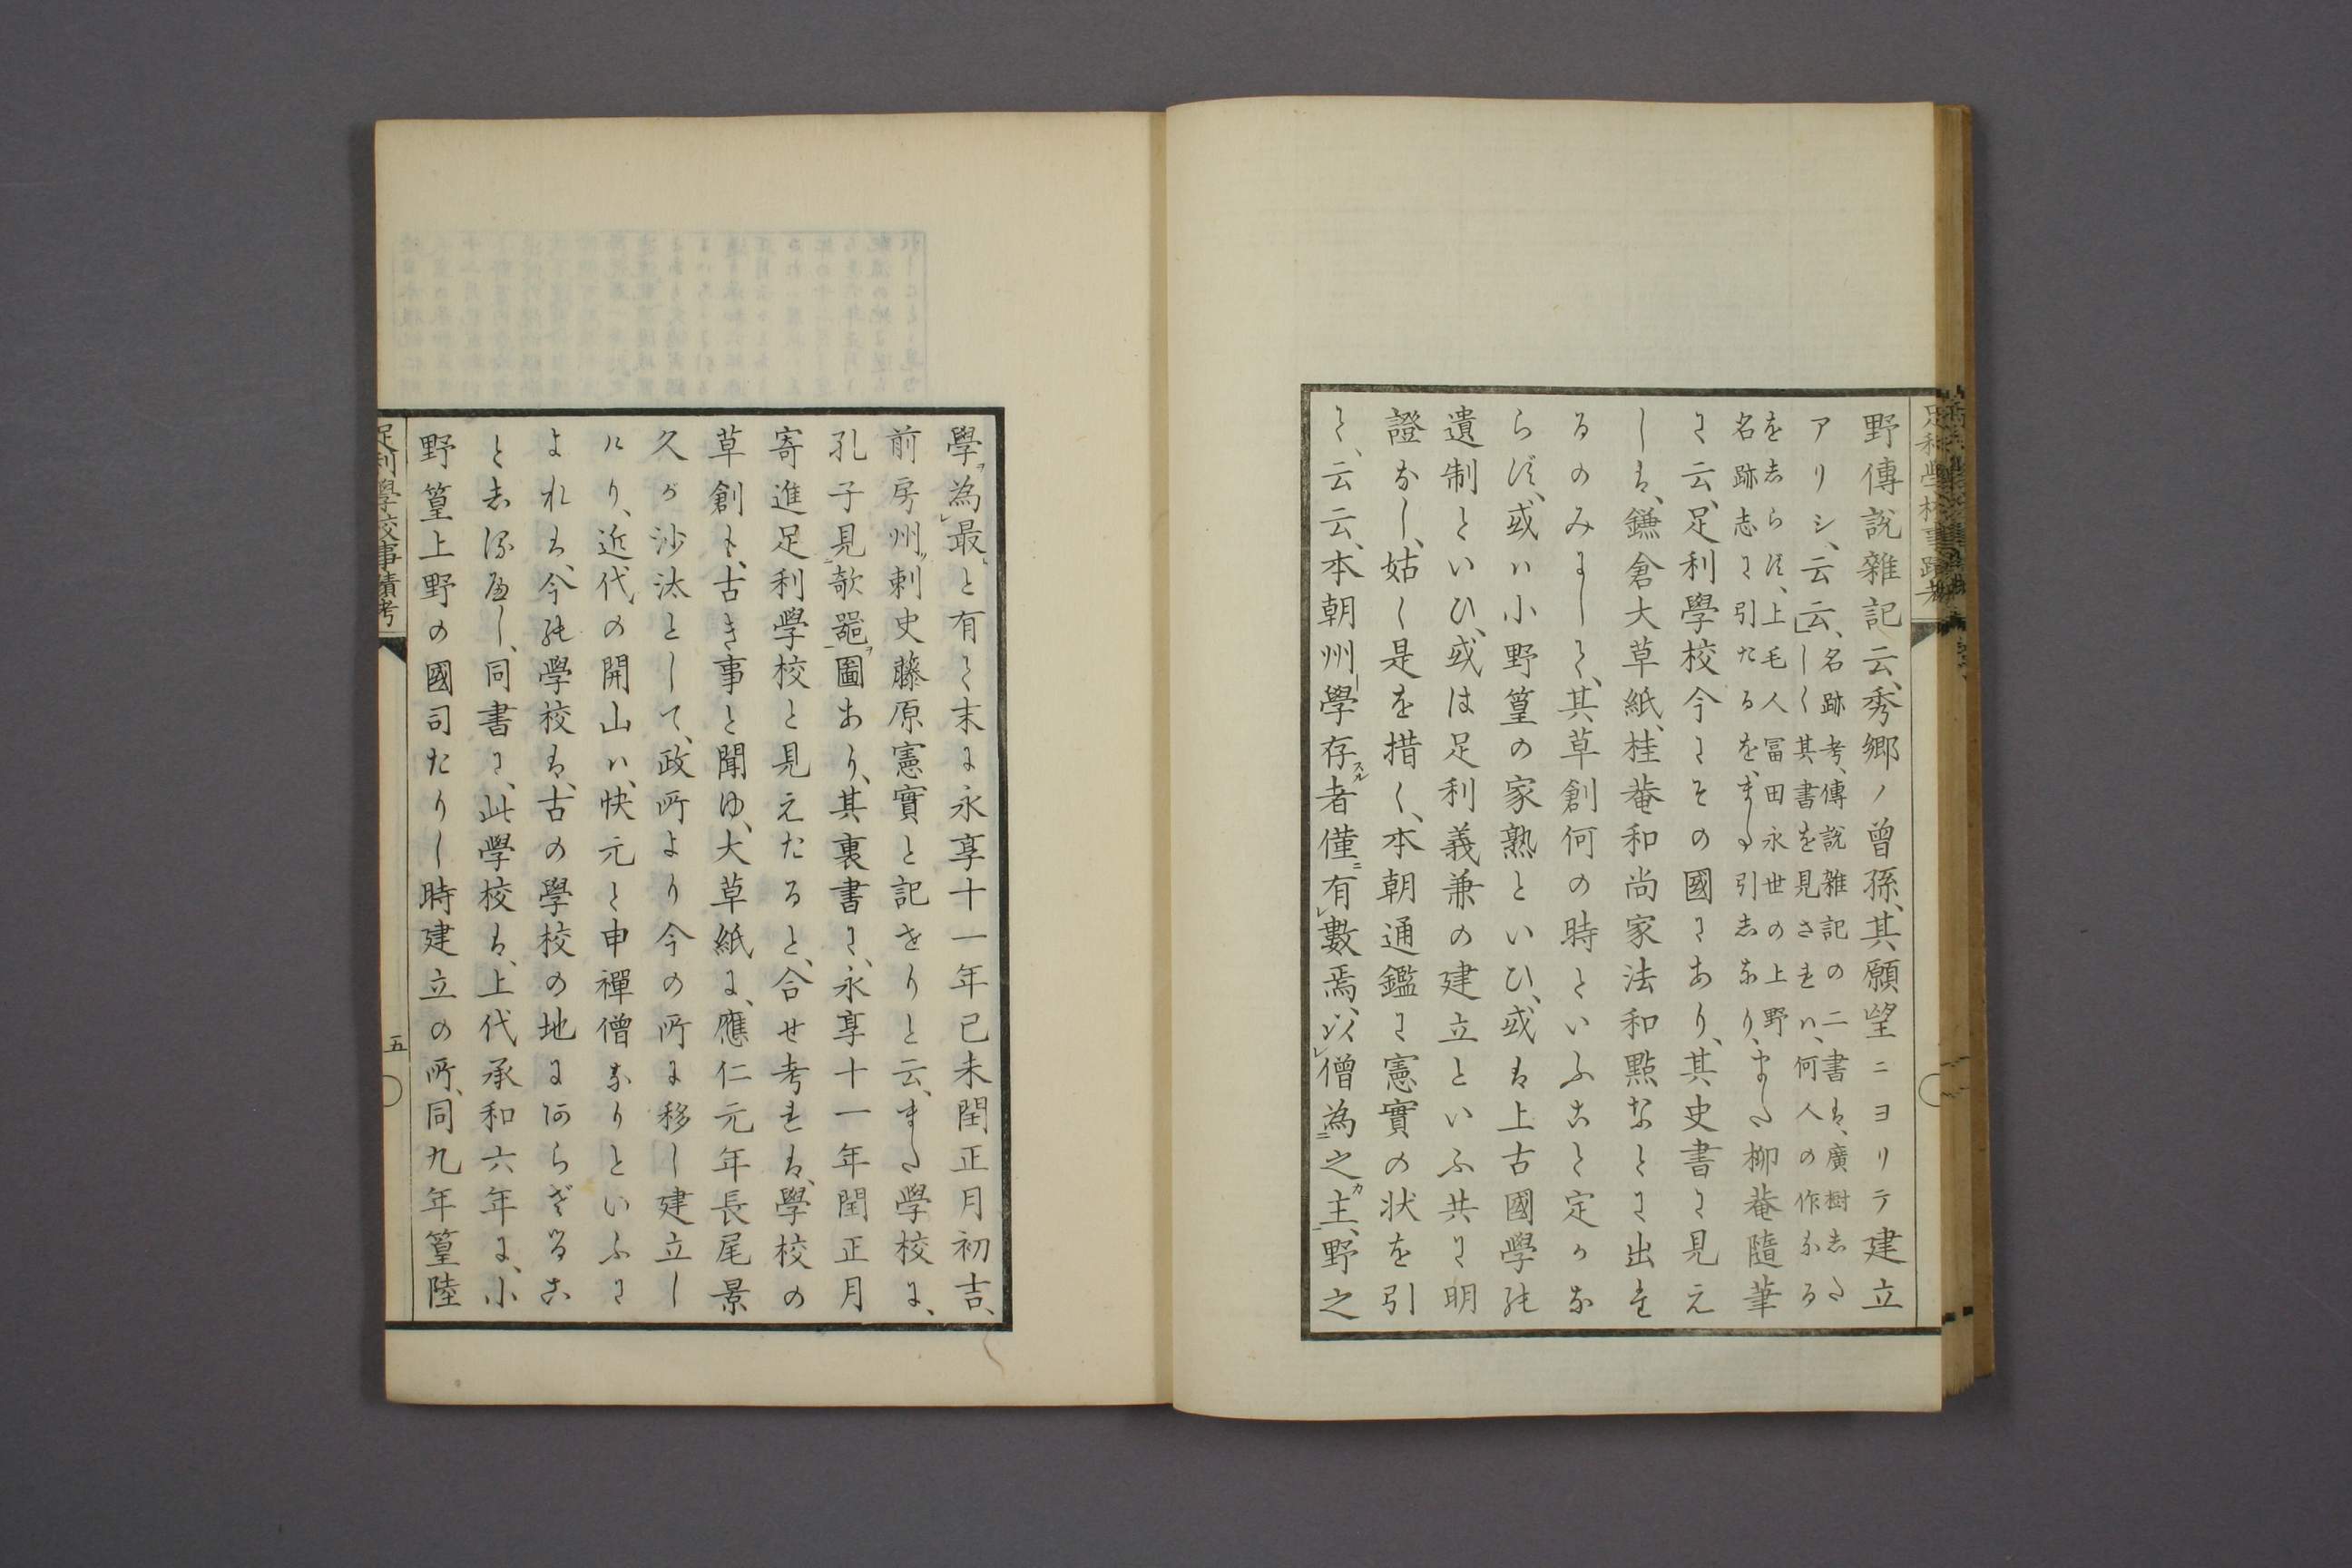 野傳説雜記云、秀郷ノ曾孫、其願望ニヨリテ建立
アリシ、云云、
名跡考、傳説雜記の二書は、廣樹志た
しく其書を見されハ、何人の作なる
を志らす、上毛人冨田永世の上野
名跡志に引たるを、また引志なり、
また柳菴隨筆
に云、足利學校今にその國にあり、其史書に見え
しは、鎌倉大草紙、桂菴和尚家法和點なとに出た
るのみにして、其草創何の時といふこと定かな
らす、或ハ小野篁の家熟といひ、或は上古國學の
遺制といひ、或は足利義兼の建立といふ共に明
證なし、姑く是を措く、本朝通鑑に憲實の状を引
て、云云、本朝州學存スル者僅ニ有數焉、以僧為之主、野之
學ヲ為最と有て末に永享十一年己未閏正月初吉、
前房州刺史藤原憲實と記せりと云、また學校に、
孔子見欹器ヲ圖あり、其裏書に、永享十一年閏正月
寄進足利學校と見えたると、合せ考れは、學校の
草創も、古き事と聞ゆ、大草紙に、應仁元年長尾景
久が沙汰として、政所より今の所に移し建立し
けり、近代の開山ハ、快元と申禪僧なりといふに
よれは、今の學校は、古の學校の地にあらざるこ
と志るへし、同書に、此學校は、上代承和六年に、小
野篁上野の國司たりし時建立の所、同九年篁陸
足利學校事蹟考
五